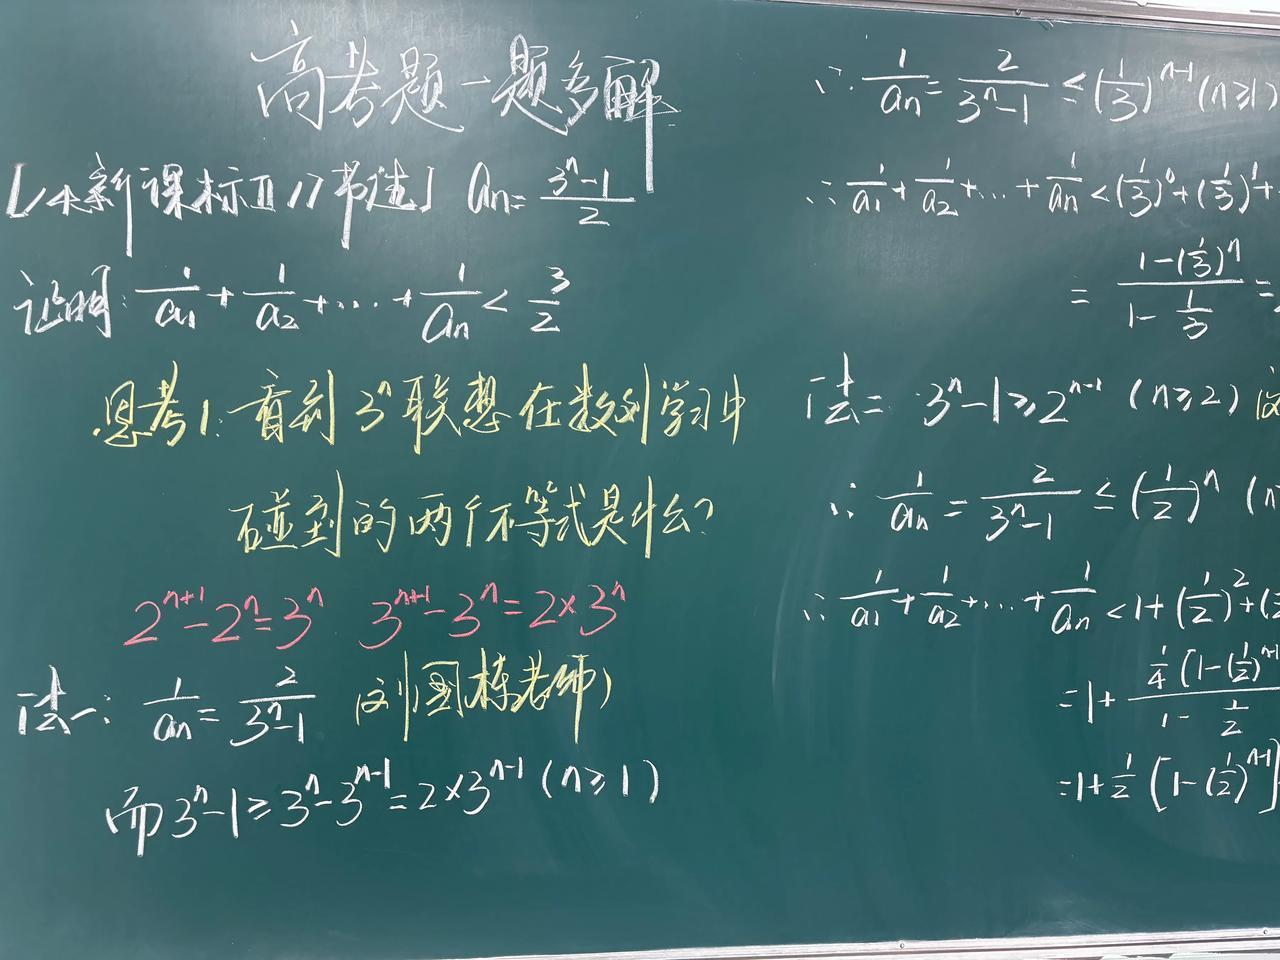 高考题一题多解
[14新课标Ⅱ17节选] aₙ = (3ⁿ-1)/2
证明: 1/a₁ + 1/a₂ + ... + 1/aₙ < 3/2
思考1: 看到 3ⁿ 联想在数列学习中
碰到的两个不等式是什么?
2ⁿ⁺¹-2ⁿ=3ⁿ 3ⁿ⁺¹-3ⁿ=2×3ⁿ
法一: 1/aₙ = 2/(3ⁿ-1) (刘国栋老师)
而 3ⁿ-1 ≥ 3ⁿ-3ⁿ⁻¹ = 2×3ⁿ⁻¹ (n≥1)
∴ 1/aₙ = 2/(3ⁿ-1) ≤ (1/3)ⁿ⁻¹ (n≥1)
∴ 1/a₁ + 1/a₂ + ... + 1/aₙ < (1/3)⁰ + (1/3)¹ +
= (1-(1/3)ⁿ)/(1-1/3) =
法二 3ⁿ-1 ≥ 2ⁿ⁻¹ (n≥2)
∴ 1/aₙ = 2/(3ⁿ-1) ≤ (1/2)ⁿ (n
∴ 1/a₁ + 1/a₂ + ... + 1/aₙ < 1 + (1/2)² + (
= 1 + (1/4 (1-(1/2)ⁿ⁻¹))/(1-1/2)
= 1 + 1/2 [1-(1/2)ⁿ⁻¹]